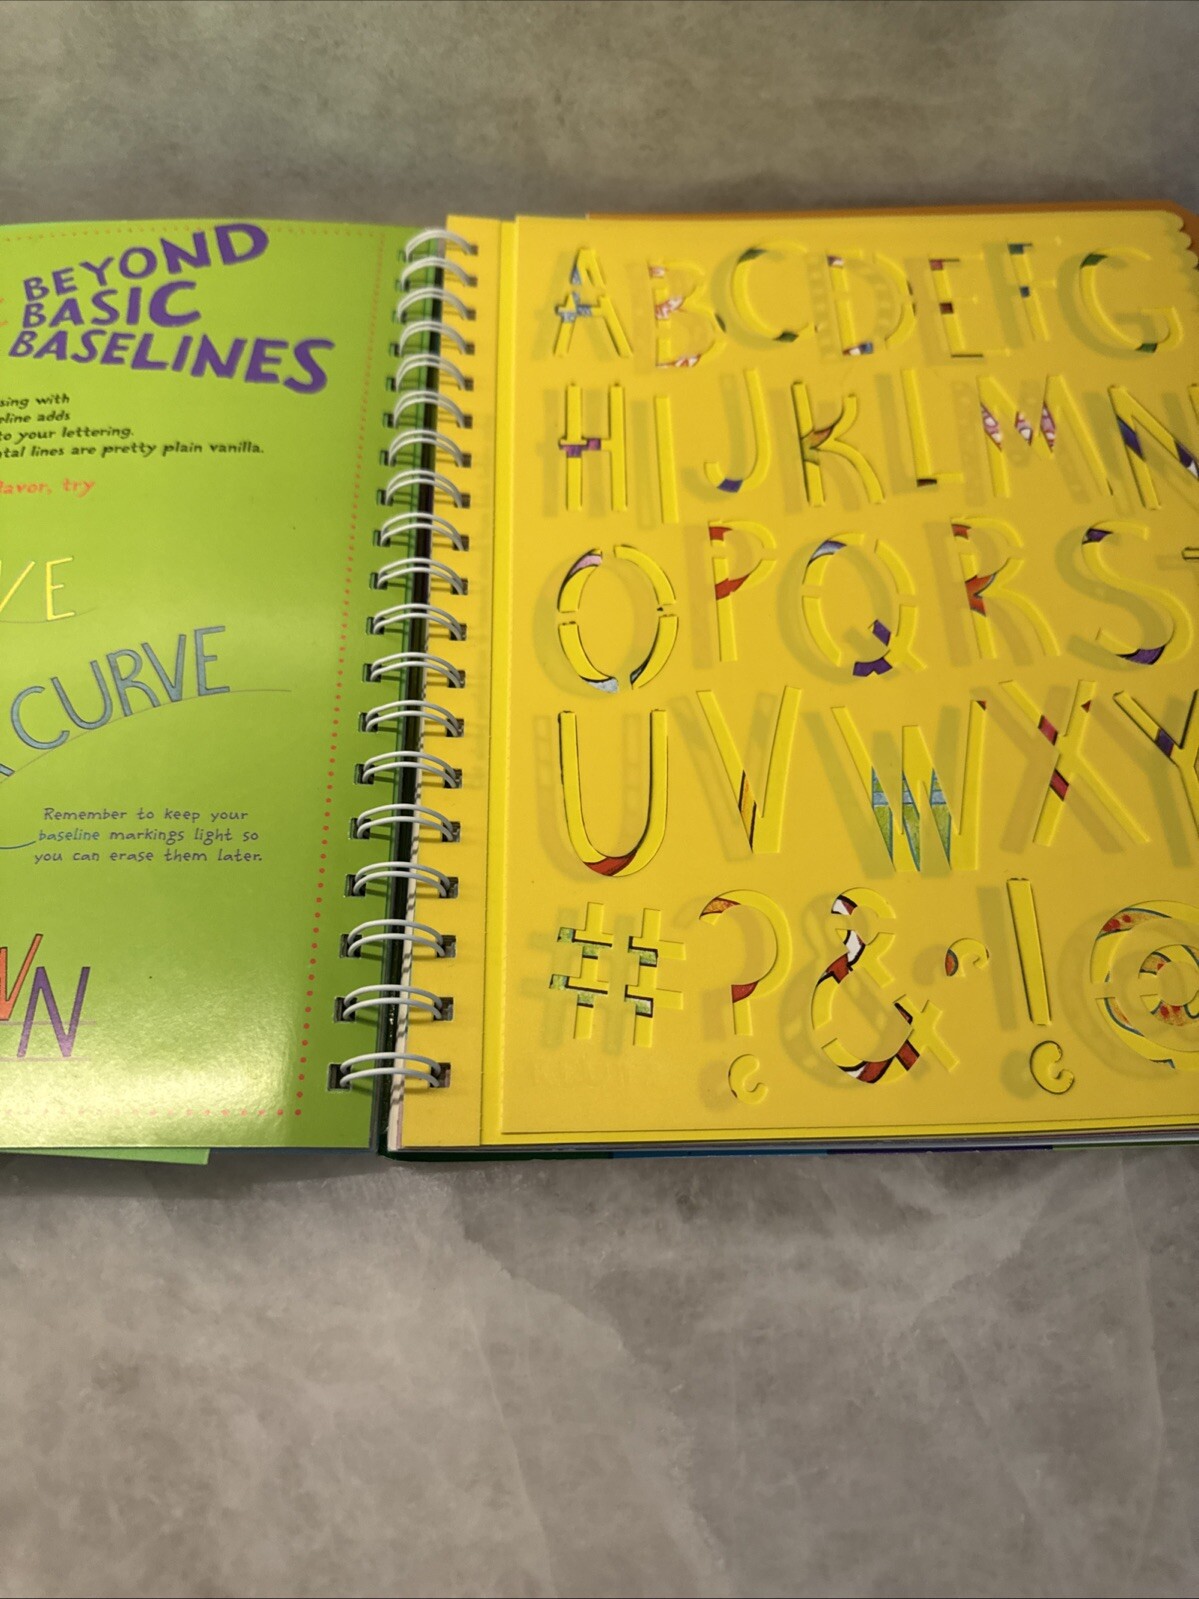 BEYOND
BASIC
BASELINES
sing with
line adds
to your lettering.
tal lines are pretty plain vanilla.
lavor, try
VE
CURVE
Remember to keep your
baseline markings light so
you can erase them later.
WN
A B C D E F G
H I J K L M N
O P Q R S T
U V W X Y
# ? & , ! @